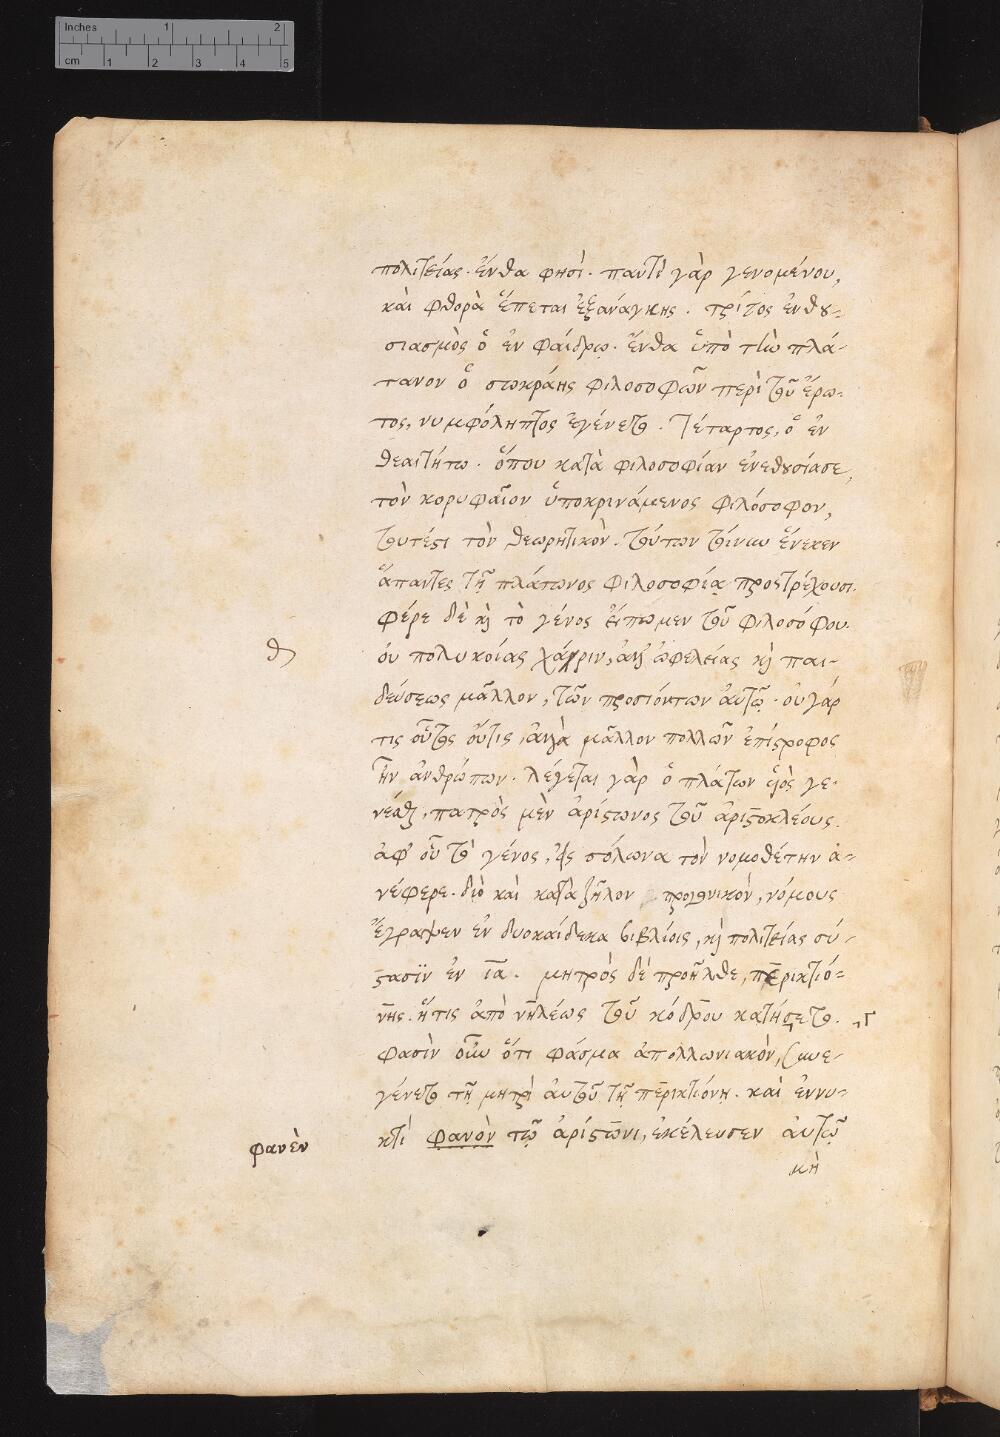 Inches 1 2
cm 1 2 3 4 5
πολιτείας. ἔνθα φησὶ. παντὶ γὰρ γενομένου,
καὶ φθορὰ ἕπεται ἐξανάγκης. τρίτος ἐνθου-
σιασμὸς ὁ ἐν φαίδρῳ. ἔνθα ὑπὸ τὴν πλά-
τανον ὁ σωκράτης φιλοσοφῶν περὶ τοῦ ἔρω-
τος, νυμφόληπτος ἐγένετο. τέταρτος, ὁ ἐν
θεαιτήτω. ὅπου κατὰ φιλοσοφίαν ἐνεθουσίασε,
τὸν κορυφαῖον ὑποκρινάμενος φιλόσοφον,
τουτέστι τὸν θεωρητικὸν. τούτων τοίνυν ἕνεκεν
ἅπαντες τῇ πλάτωνος φιλοσοφίᾳ προστρέχουσι.
φέρε δὲ καὶ τὸ γένος εἴπωμεν τοῦ φιλοσόφου.
θ
οὐ πολυκοίας χάριν, ἀλλ' ὠφελείας καὶ παι-
δεύσεως μᾶλλον, τῶν προσιόντων αὐτῷ. οὐ γάρ
τις οὗτος οὔτις, ἀλλὰ μᾶλλον πολλῶν ἐπίστροφος
ἦν ἀνθρώπων. λέγεται γὰρ ὁ πλάτων υἱὸς γε-
νέσθαι, πατρὸς μὲν ἀρίστωνος τοῦ ἀριστοκλέους.
ἀφ' οὗ τὸ γένος, εἰς σόλωνα τὸν νομοθέτην ἀ-
νέφερε. διὸ καὶ κατὰ ζῆλον προγονικὸν, νόμους
ἔγραψεν ἐν δυοκαίδεκα βιβλίοις, καὶ πολιτείας σύ-
στασϊν ἐν ια. μητρὸς δὲ προῆλθε, περικτιό-
νης. ἥτις ἀπὸ νηλέως τοῦ κόδρου κατήσετο. ,γΓ
φασὶν οὖν ὅτι φάσμα ἀπολλωνιακὸν, συνε-
γένετο τῇ μητρὶ αὐτοῦ τῇ περικτιόνῃ. καὶ ἐννυ-
φανὲν
κτὶ φανὸν τῷ ἀρίστωνι, ἐκέλευσεν αὐτῷ
μὴ